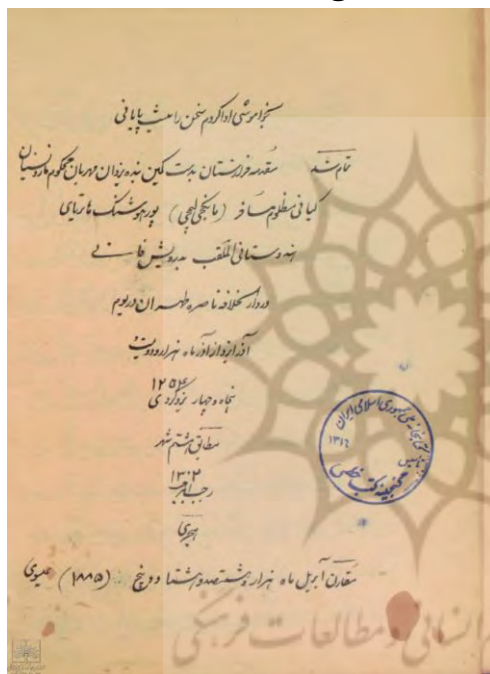 بخاموشی ادا کردم سخن را نیست پایانی
تمام شد مقدمه فرازستان بدست کمین بنده یزدان مهربان محکوم ماردنسیان
کیانی مظلوم مسافر (مانکجی لیمجی) پور هوشنگ هاتریای
هندوستانی الملقب بدرویش فانی
در دار الخلافه ناصره طهران در یوم
آذر ایزد از آذر ماه هزار و دویست و
۱۲۵۴
پنجاه و چهار یزدگردی
مطابق هشتم شهر
۱۳۰۲
رجب المرجب
هجری
مقارن آپریل ماه هزار و هشتصد و هشتاد و پنج (۱۸۸۵) عیسوی
جمهوری اسلامی ایران
تأسیس ۱۳۱۶
گنجینه کتب خطی
انسانی و مطالعات فرهنگی